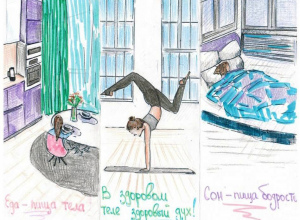 Еда - пища тела
В здоровом
теле здоровый дух!
Сон - пища бодрости